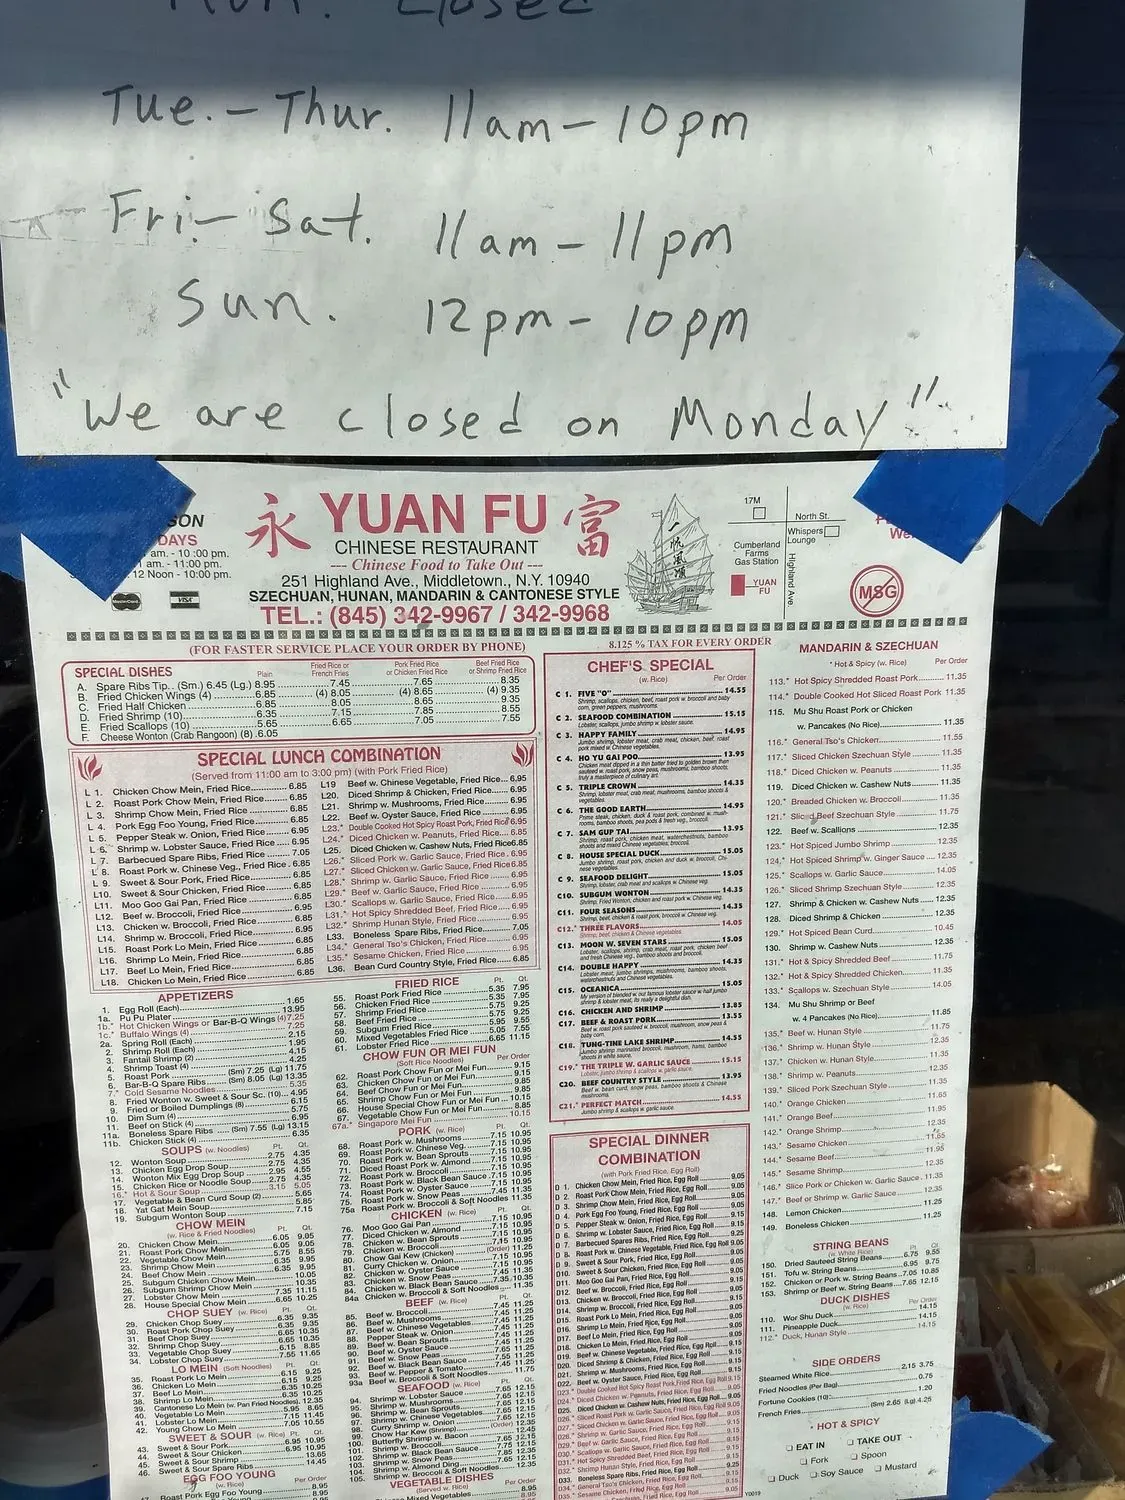 Mon. Closed
Tue. - Thur. 11am - 10pm
Fri - Sat. 11am - 11pm
Sun. 12pm - 10pm
"We are closed on Monday"
永 YUAN FU 富
CHINESE RESTAURANT
--- Chinese Food to Take Out ---
251 Highland Ave., Middletown., N.Y. 10940
SZECHUAN, HUNAN, MANDARIN & CANTONESE STYLE
TEL.: (845) 342-9967 / 342-9968
SON
DAYS
am. - 10:00 pm.
am. - 11:00 pm.
12 Noon - 10:00 pm.
MasterCard VISA
一帆風順
17M
North St.
Whispers Lounge
Cumberland Farms Gas Station
Highland Ave
YUAN FU
MSG
(FOR FASTER SERVICE PLACE YOUR ORDER BY PHONE)
8.125 % TAX FOR EVERY ORDER
SPECIAL DISHES
Plain Fried Rice or French Fries Pork Fried Rice or Chicken Fried Rice Beef Fried Rice or Shrimp Fried Rice
A. Spare Ribs Tip.. (Sm.) 6.45 (Lg.) 8.95 7.45 7.65 8.35
B. Fried Chicken Wings (4) 6.85 (4) 8.05 (4) 8.65 (4) 9.35
C. Fried Half Chicken 6.85 8.05 8.65 9.35
D. Fried Shrimp (10) 6.35 7.15 7.85 8.55
E. Fried Scallops (10) 5.65 6.65 7.05 7.55
F. Cheese Wonton (Crab Rangoon) (8) 6.05
SPECIAL LUNCH COMBINATION
(Served from 11:00 am to 3:00 pm) (with Pork Fried Rice)
L 1. Chicken Chow Mein, Fried Rice 6.85
L 2. Roast Pork Chow Mein, Fried Rice 6.85
L 3. Shrimp Chow Mein, Fried Rice 6.85
L 4. Pork Egg Foo Young, Fried Rice 6.85
L 5. Pepper Steak w. Onion, Fried Rice 6.95
L 6. Shrimp w. Lobster Sauce, Fried Rice 6.95
L 7. Barbecued Spare Ribs, Fried Rice 7.05
L 8. Roast Pork w. Chinese Veg., Fried Rice 6.85
L 9. Sweet & Sour Pork, Fried Rice 6.85
L10. Sweet & Sour Chicken, Fried Rice 6.85
L11. Moo Goo Gai Pan, Fried Rice 6.85
L12. Beef w. Broccoli, Fried Rice 6.95
L13. Chicken w. Broccoli, Fried Rice
L14. Shrimp w. Broccoli, Fried Rice 6.95
L15. Roast Pork Lo Mein, Fried Rice 6.85
L16. Shrimp Lo Mein, Fried Rice
L17. Beef Lo Mein, Fried Rice
L18. Chicken Lo Mein, Fried Rice 6.85
L19 Beef w. Chinese Vegetable, Fried Rice 6.95
L20. Diced Shrimp & Chicken, Fried Rice 6.95
L21. Shrimp w. Mushrooms, Fried Rice 6.95
L22. Beef w. Oyster Sauce, Fried Rice 6.95
L23.* Double Cooked Hot Spicy Roast Pork, Fried Rice 6.95
L24.* Diced Chicken w. Peanuts, Fried Rice 6.85
L25. Diced Chicken w. Cashew Nuts, Fried Rice 6.85
L26.* Sliced Pork w. Garlic Sauce, Fried Rice 6.95
L27.* Sliced Chicken w. Garlic Sauce, Fried Rice 6.95
L28.* Shrimp w. Garlic Sauce, Fried Rice 6.95
L29.* Beef w. Garlic Sauce, Fried Rice 6.95
L30.* Scallops w. Garlic Sauce, Fried Rice 6.95
L31.* Hot Spicy Shredded Beef, Fried Rice 6.95
L32.* Shrimp Hunan Style, Fried Rice 6.95
L33. Boneless Spare Ribs, Fried Rice 7.05
L34.* General Tso's Chicken, Fried Rice 6.95
L35.* Sesame Chicken, Fried Rice 6.95
L36. Bean Curd Country Style, Fried Rice 6.85
APPETIZERS
1. Egg Roll (Each) 1.65
1a. Pu Pu Platter 13.95
1b.* Hot Chicken Wings or Bar-B-Q Wings (4) 7.25
1c.* Buffalo Wings (4) 7.25
2a. Spring Roll (Each) 2.15
2. Shrimp Roll (Each) 1.95
3. Fantail Shrimp (2) 4.15
4. Shrimp Toast (4) 4.25
5. Roast Pork (Sm) 7.25 (Lg) 11.75
6. Bar-B-Q Spare Ribs (Sm) 8.05 (Lg) 13.35
7.* Cold Sesame Noodles 5.35
8. Fried Wonton w. Sweet & Sour Sc. (10) 4.95
9. Fried or Boiled Dumplings (8) 6.15
10. Dim Sum (4) 5.75
11. Beef on Stick (4) 6.95
11a. Boneless Spare Ribs (Sm) 7.55 (Lg) 13.15
11b. Chicken Stick (4) 6.35
SOUPS (w. Noodles)
Pt. Qt.
12. Wonton Soup 2.75 4.35
13. Chicken Egg Drop Soup 2.75 4.35
14. Wonton Mix Egg Drop Soup 2.95 4.55
15. Chicken Rice or Noodle Soup 2.75 4.35
16.* Hot & Sour Soup 3.15 5.05
17. Vegetable & Bean Curd Soup (2) 5.65
18. Yat Gat Mein Soup 5.85
19. Subgum Wonton Soup 7.15
CHOW MEIN
(w. Rice & Fried Noodles) Pt. Qt.
20. Chicken Chow Mein 6.05 9.05
21. Roast Pork Chow Mein 6.05 9.05
22. Vegetable Chow Mein 5.75 8.55
23. Shrimp Chow Mein 6.35 9.95
24. Beef Chow Mein 6.35 9.95
25. Subgum Chicken Chow Mein 10.05
26. Subgum Shrimp Chow Mein
27. Lobster Chow Mein 7.35 11.15
28. House Special Chow Mein 6.65 10.25
CHOP SUEY (w. Rice)
29. Chicken Chop Suey 6.35 9.35
30. Roast Pork Chop Suey 6.35 9.35
31. Beef Chop Suey 6.65 10.35
32. Shrimp Chop Suey 6.65 10.35
33. Vegetable Chop Suey 6.15 8.85
34. Lobster Chop Suey 7.55 11.65
LO MEIN (Soft Noodles)
35. Roast Pork Lo Mein 6.15 9.25
36. Chicken Lo Mein 6.15 9.25
37. Beef Lo Mein 6.35 10.25
38. Shrimp Lo Mein 6.35 10.25
39. Cantonese Lo Mein (w. Pan Fried Noodles) 12.35
40. Vegetable Lo Mein 5.95 8.65
41. Lobster Lo Mein 7.15 11.45
42. Young Chow Lo Mein 7.05 10.55
SWEET & SOUR (w. Rice) Pt. Qt.
43. Sweet & Sour Pork 6.95 10.95
44. Sweet & Sour Chicken 6.95 10.95
45. Sweet & Sour Shrimp 13.65
46. Sweet & Sour Spare Ribs 14.45
EGG FOO YOUNG
(w. Rice) Per Order
Roast Pork Egg Foo Young 8.95
FRIED RICE
55. Roast Pork Fried Rice 5.35 7.95
56. Chicken Fried Rice 5.35 7.95
57. Shrimp Fried Rice 5.75 9.25
58. Beef Fried Rice 5.75 9.25
59. Subgum Fried Rice 5.95 9.55
60. Mixed Vegetables Fried Rice 5.05 7.55
61. Lobster Fried Rice 6.65 11.15
CHOW FUN OR MEI FUN
(Soft Rice Noodles) Per Order
62. Roast Pork Chow Fun or Mei Fun 9.15
63. Chicken Chow Fun or Mei Fun 9.15
64. Beef Chow Fun or Mei Fun 9.85
65. Shrimp Chow Fun or Mei Fun 9.85
66. House Special Chow Fun or Mei Fun 10.15
67. Vegetable Chow Fun or Mei Fun 8.85
67a.* Singapore Mei Fun 10.15
PORK (w. Rice) Pt. Qt.
68. Roast Pork w. Mushrooms 7.15 10.95
69. Roast Pork w. Chinese Veg. 7.15 10.95
70. Roast Pork w. Bean Sprouts 7.15 10.95
71. Diced Roast Pork w. Almond 7.15 10.95
72. Roast Pork w. Broccoli 7.15 10.95
73. Roast Pork w. Black Bean Sauce 7.15 10.95
74. Roast Pork w. Oyster Sauce 7.15 10.95
75. Roast Pork w. Snow Peas 7.45 11.35
75a Roast Pork w. Broccoli & Soft Noodles 11.35
CHICKEN (w. Rice) Pt. Qt.
76. Moo Goo Gai Pan 7.15 10.95
77. Diced Chicken w. Almond 7.15 10.95
78. Chicken w. Bean Sprouts 7.15 10.95
79. Chicken w. Broccoli 7.15 10.95
80. Chow Gai Kew (Chicken) (Order) 11.25
81. Curry Chicken w. Onion 7.15 10.95
82. Chicken w. Oyster Sauce 7.15 10.95
83. Chicken w. Snow Peas 7.45 11.35
84. Chicken w. Black Bean Sauce 7.35 10.95
84a Chicken w. Broccoli & Soft Noodles 11.35
BEEF (w. Rice) Pt. Qt.
85. Beef w. Broccoli 7.45 11.25
86. Beef w. Mushrooms 7.45 11.25
87. Beef w. Chinese Vegetables 7.45 11.25
88. Pepper Steak w. Onion 7.45 11.25
89. Beef w. Bean Sprouts 7.45 11.25
90. Beef w. Oyster Sauce 7.45 11.25
91. Beef w. Snow Peas
92. Beef w. Black Bean Sauce 7.45 11.25
93. Beef w. Pepper & Tomato 7.45 11.25
93a Beef w. Broccoli & Soft Noodles 11.75
SEAFOOD (w. Rice) Pt. Qt.
94. Shrimp w. Lobster Sauce 7.65 12.15
95. Shrimp w. Mushrooms 7.65 12.15
96. Shrimp w. Bean Sprouts 7.65 12.15
97. Shrimp w. Chinese Vegetables 7.65 12.15
98. Curry Shrimp w. Onion 7.65 12.15
99. Chow Har Kew (Shrimp) (Order) 12.35
100. Butterfly Shrimp w. Bacon 12.45
101. Shrimp w. Broccoli 7.65 12.15
102. Shrimp w. Black Bean Sauce 7.75 12.15
103. Shrimp w. Snow Peas 7.85 12.35
104. Shrimp w. Almond Ding 7.65 12.15
105. Shrimp w. Broccoli & Soft Noodles 12.35
VEGETABLE DISHES
(w. Rice) Per Order
Chinese Mixed Vegetables 8.95
CHEF'S SPECIAL
(w. Rice) Per Order
C 1. FIVE "O" 14.55
Shrimp, scallops, chicken, beef, roast pork w. broccoli and baby corn, green peppers, mushrooms.
C 2. SEAFOOD COMBINATION 15.15
Lobster, scallops, jumbo shrimp w. lobster sauce.
C 3. HAPPY FAMILY 14.95
Jumbo shrimp, lobster meat, crab meat, chicken, beef, roast pork mixed w. Chinese vegetables.
C 4. HO YU GAI POO 13.95
Chicken meat dipped in a thin batter fried to golden brown then sauteed w. roast pork, snow peas, mushrooms, bamboo shoots, truly a masterpiece of culinary art.
C 5. TRIPLE CROWN 14.35
Shrimp, lobster meat, crab meat, chicken, bamboo shoots & vegetables.
C 6. THE GOOD EARTH 14.95
Prime steak, chicken, duck & roast pork, combined w. mushrooms, bamboo shoots, pea pods & fresh veg., broccoli.
C 7. SAM GUP TAI 13.95
Shrimp, roast pork, chicken meat, waterchestnuts, bamboo shoots and mixed Chinese vegetables, broccoli.
C 8. HOUSE SPECIAL DUCK 15.05
Jumbo shrimp, roast pork, chicken and duck w. broccoli, Chinese veg.
C 9. SEAFOOD DELIGHT 15.05
Shrimp, lobster, crab meat and scallops w. Chinese veg.
C10. SUBGUM WONTON 14.35
Shrimp, fried Wonton, chicken and roast pork w. Chinese veg.
C11. FOUR SEASONS 14.35
Shrimp, beef, chicken & roast pork, broccoli w. Chinese veg.
C12.* THREE FLAVORS 14.05
Shrimp, beef, chicken & Chinese vegetables.
C13. MOON W. SEVEN STARS 15.05
Lobster, scallops, shrimp, crab meat, roast pork, chicken beef and fresh Chinese veg., bamboo shoots and broccoli.
C14. DOUBLE HAPPY 14.35
Lobster meat, jumbo shrimps, mushrooms, bamboo shoots, waterchestnuts and Chinese vegetables.
C15. OCEANICA 15.05
My version of blended w. our famous lobster sauce w. half jumbo shrimp & lobster meat, its really a delightful dish.
C16. CHICKEN AND SHRIMP 13.85
C17. BEEF & ROAST PORK 13.55
Beef w. roast pork sauteed w. broccoli, mushroom, snow peas & baby corn.
C18. TUNG-TINE LAKE SHRIMP 14.55
Jumbo shrimp marinated broccoli, mushroom, hams, bamboo shoots in white sauce.
C19.* THE TRIPLE W. GARLIC SAUCE 15.15
Lobster, jumbo shrimp & scallops w. garlic sauce.
C20. BEEF COUNTRY STYLE 13.95
Beef w. bean curd, snow peas, bamboo shoots & Chinese mushrooms.
C21.* PERFECT MATCH 14.55
Jumbo shrimp & scallops w. garlic sauce.
SPECIAL DINNER COMBINATION
(with Pork Fried Rice, Egg Roll)
D 1. Chicken Chow Mein, Fried Rice, Egg Roll 9.05
D 2. Roast Pork Chow Mein, Fried Rice, Egg Roll 9.05
D 3. Shrimp Chow Mein, Fried Rice, Egg Roll 9.05
D 4. Pork Egg Foo Young, Fried Rice, Egg Roll 9.05
D 5. Pepper Steak w. Onion, Fried Rice, Egg Roll 9.15
D 6. Shrimp w. Lobster Sauce, Fried Rice, Egg Roll 9.15
D 7. Barbecued Spare Ribs, Fried Rice, Egg Roll 9.25
D 8. Roast Pork w. Chinese Vegetable, Fried Rice, Egg Roll 9.05
D 9. Sweet & Sour Pork, Fried Rice, Egg Roll 9.05
D10. Sweet & Sour Chicken, Fried Rice, Egg Roll 9.05
D11. Moo Goo Gai Pan, Fried Rice, Egg Roll 9.05
D12. Beef w. Broccoli, Fried Rice, Egg Roll 9.15
D13. Chicken w. Broccoli, Fried Rice, Egg Roll 9.05
D14. Shrimp w. Broccoli, Fried Rice, Egg Roll 9.15
D15. Roast Pork Lo Mein, Fried Rice, Egg Roll 9.05
D16. Shrimp Lo Mein, Fried Rice, Egg Roll 9.05
D17. Beef Lo Mein, Fried Rice, Egg Roll 9.05
D18. Chicken Lo Mein, Fried Rice, Egg Roll 9.05
D19. Beef w. Chinese Vegetable, Fried Rice, Egg Roll 9.15
D20. Diced Shrimp & Chicken, Fried Rice, Egg Roll 9.15
D21. Shrimp w. Mushrooms, Fried Rice, Egg Roll 9.15
D22. Beef w. Oyster Sauce, Fried Rice, Egg Roll 9.15
D23.* Double Cooked Hot Spicy Roast Pork, Fried Rice, Egg Roll 9.15
D24.* Diced Chicken w. Peanuts, Fried Rice, Egg Roll 9.05
D25. Diced Chicken w. Cashew Nuts, Fried Rice, Egg Roll 9.05
D26.* Sliced Roast Pork w. Garlic Sauce, Fried Rice, Egg Roll
D27.* Sliced Chicken w. Garlic Sauce, Fried Rice, Egg Roll
D28.* Shrimp w. Garlic Sauce, Fried Rice, Egg Roll 9.15
D29.* Beef w. Garlic Sauce, Fried Rice, Egg Roll 9.15
D30.* Scallops w. Garlic Sauce, Fried Rice, Egg Roll 9.15
D31.* Hot Spicy Shredded Beef, Fried Rice, Egg Roll 9.15
D32.* Shrimp Hunan Style, Fried Rice, Egg Roll 9.15
D33. Boneless Spare Ribs, Fried Rice, Egg Roll 9.25
D34.* General Tso's Chicken, Fried Rice, Egg Roll 9.15
D35.* Sesame Chicken, Fried Rice, Egg Roll 9.15
Y0019
MANDARIN & SZECHUAN
* Hot & Spicy (w. Rice) Per Order
113.* Hot Spicy Shredded Roast Pork 11.35
114.* Double Cooked Hot Sliced Roast Pork 11.35
115. Mu Shu Roast Pork or Chicken
w. Pancakes (No Rice) 11.35
116.* General Tso's Chicken 11.55
117.* Sliced Chicken Szechuan Style 11.35
118.* Diced Chicken w. Peanuts 11.35
119. Diced Chicken w. Cashew Nuts 11.35
120.* Breaded Chicken w. Broccoli 11.35
121.* Sliced Beef Szechuan Style 11.75
122. Beef w. Scallions 12.35
123.* Hot Spiced Jumbo Shrimp 12.35
124.* Hot Spiced Shrimp w. Ginger Sauce 12.35
125.* Scallops w. Garlic Sauce 14.05
126.* Sliced Shrimp Szechuan Style 12.35
127. Shrimp & Chicken w. Cashew Nuts 12.35
128. Diced Shrimp & Chicken 12.35
129.* Hot Spiced Bean Curd 10.45
130. Shrimp w. Cashew Nuts 12.35
131.* Hot & Spicy Shredded Beef 11.75
132.* Hot & Spicy Shredded Chicken 11.35
133.* Scallops w. Szechuan Style 14.05
134. Mu Shu Shrimp or Beef
w. 4 Pancakes (No Rice) 11.85
135.* Beef w. Hunan Style 11.75
136.* Shrimp w. Hunan Style 12.35
137.* Chicken w. Hunan Style 11.35
138.* Shrimp w. Peanuts 12.35
139.* Sliced Pork Szechuan Style 11.35
140.* Orange Chicken 11.65
141.* Orange Beef 11.95
142.* Orange Shrimp 12.35
143.* Sesame Chicken 11.55
144.* Sesame Beef 11.95
145.* Sesame Shrimp 12.35
146.* Slice Pork or Chicken w. Garlic Sauce 11.35
147.* Beef or Shrimp w. Garlic Sauce 12.35
148. Lemon Chicken 11.25
149. Boneless Chicken 11.25
STRING BEANS
(w. White Rice) Pt. Qt.
150. Dried Sauteed String Beans 6.75 9.55
151. Tofu w. String Beans 6.95 9.75
152. Chicken or Pork w. String Beans 7.05 10.85
153. Shrimp or Beef w. String Beans 7.65 12.15
DUCK DISHES
(w. Rice) Per Order
110. Wor Shu Duck 14.15
111. Pineapple Duck 14.15
112.* Duck, Hunan Style 14.15
SIDE ORDERS
Steamed White Rice 2.15 3.75
Fried Noodles (Per Bag) 0.75
Fortune Cookies (10) 1.20
French Fries (Sm) 2.65 (Lg) 4.25
* HOT & SPICY
EAT IN TAKE OUT
Fork Spoon
Duck Soy Sauce Mustard